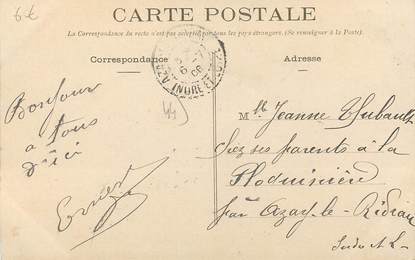 6€
CARTE POSTALE
La Correspondance du recto n'est pas acceptée par tous les pays étrangers. (Se renseigner à la Poste).
Correspondance
Adresse
INDRE ET
Bonjour
a tous
d'ici
Ernest
Mlle Jeanne Thubault
chez ses parents à la
Ploquinière
par Azay-le-Rideau
Indre & L